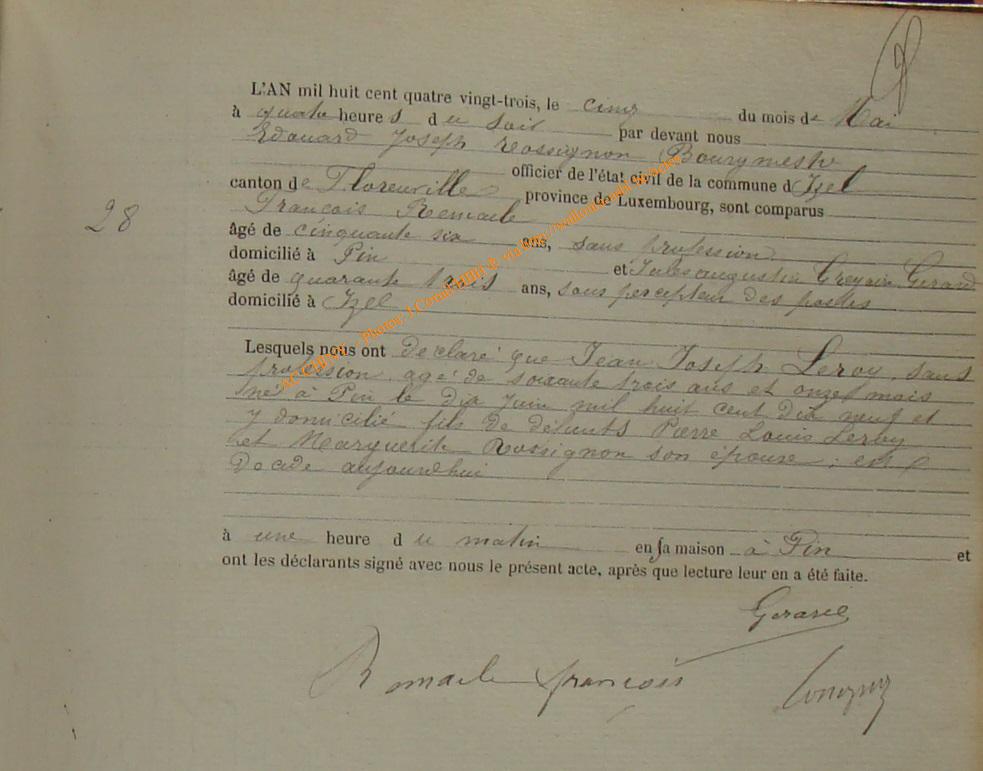 L'AN mil huit cent quatre vingt-trois, le cinq du mois de Mai
à quatre heures du soir par devant nous
Edouard Joseph Rossignon Bourgmestre
officier de l'état civil de la commune d'Izel
canton de Florenville province de Luxembourg, sont comparus
François Remacle
28
âgé de cinquante six ans, sans profession
domicilié à Pin et Jules augustin Gérard
âgé de quarante trois ans, sous percepteur des postes
domicilié à Izel
Lesquels nous ont declaré que Jean Joseph Leroy, sans
profession, agé de soixante trois ans et onze mois
né à Pin le dix Juin mil huit cent dix neuf et
y domicilié fils de défunts Pierre Louis Leroy
et Marguerite Rossignon son épouse, est
décédé aujourdhui
à une heure du matin en sa maison à Pin et
ont les déclarants signé avec nous le présent acte, après que lecture leur en a été faite.
Gerard
Remacle françois